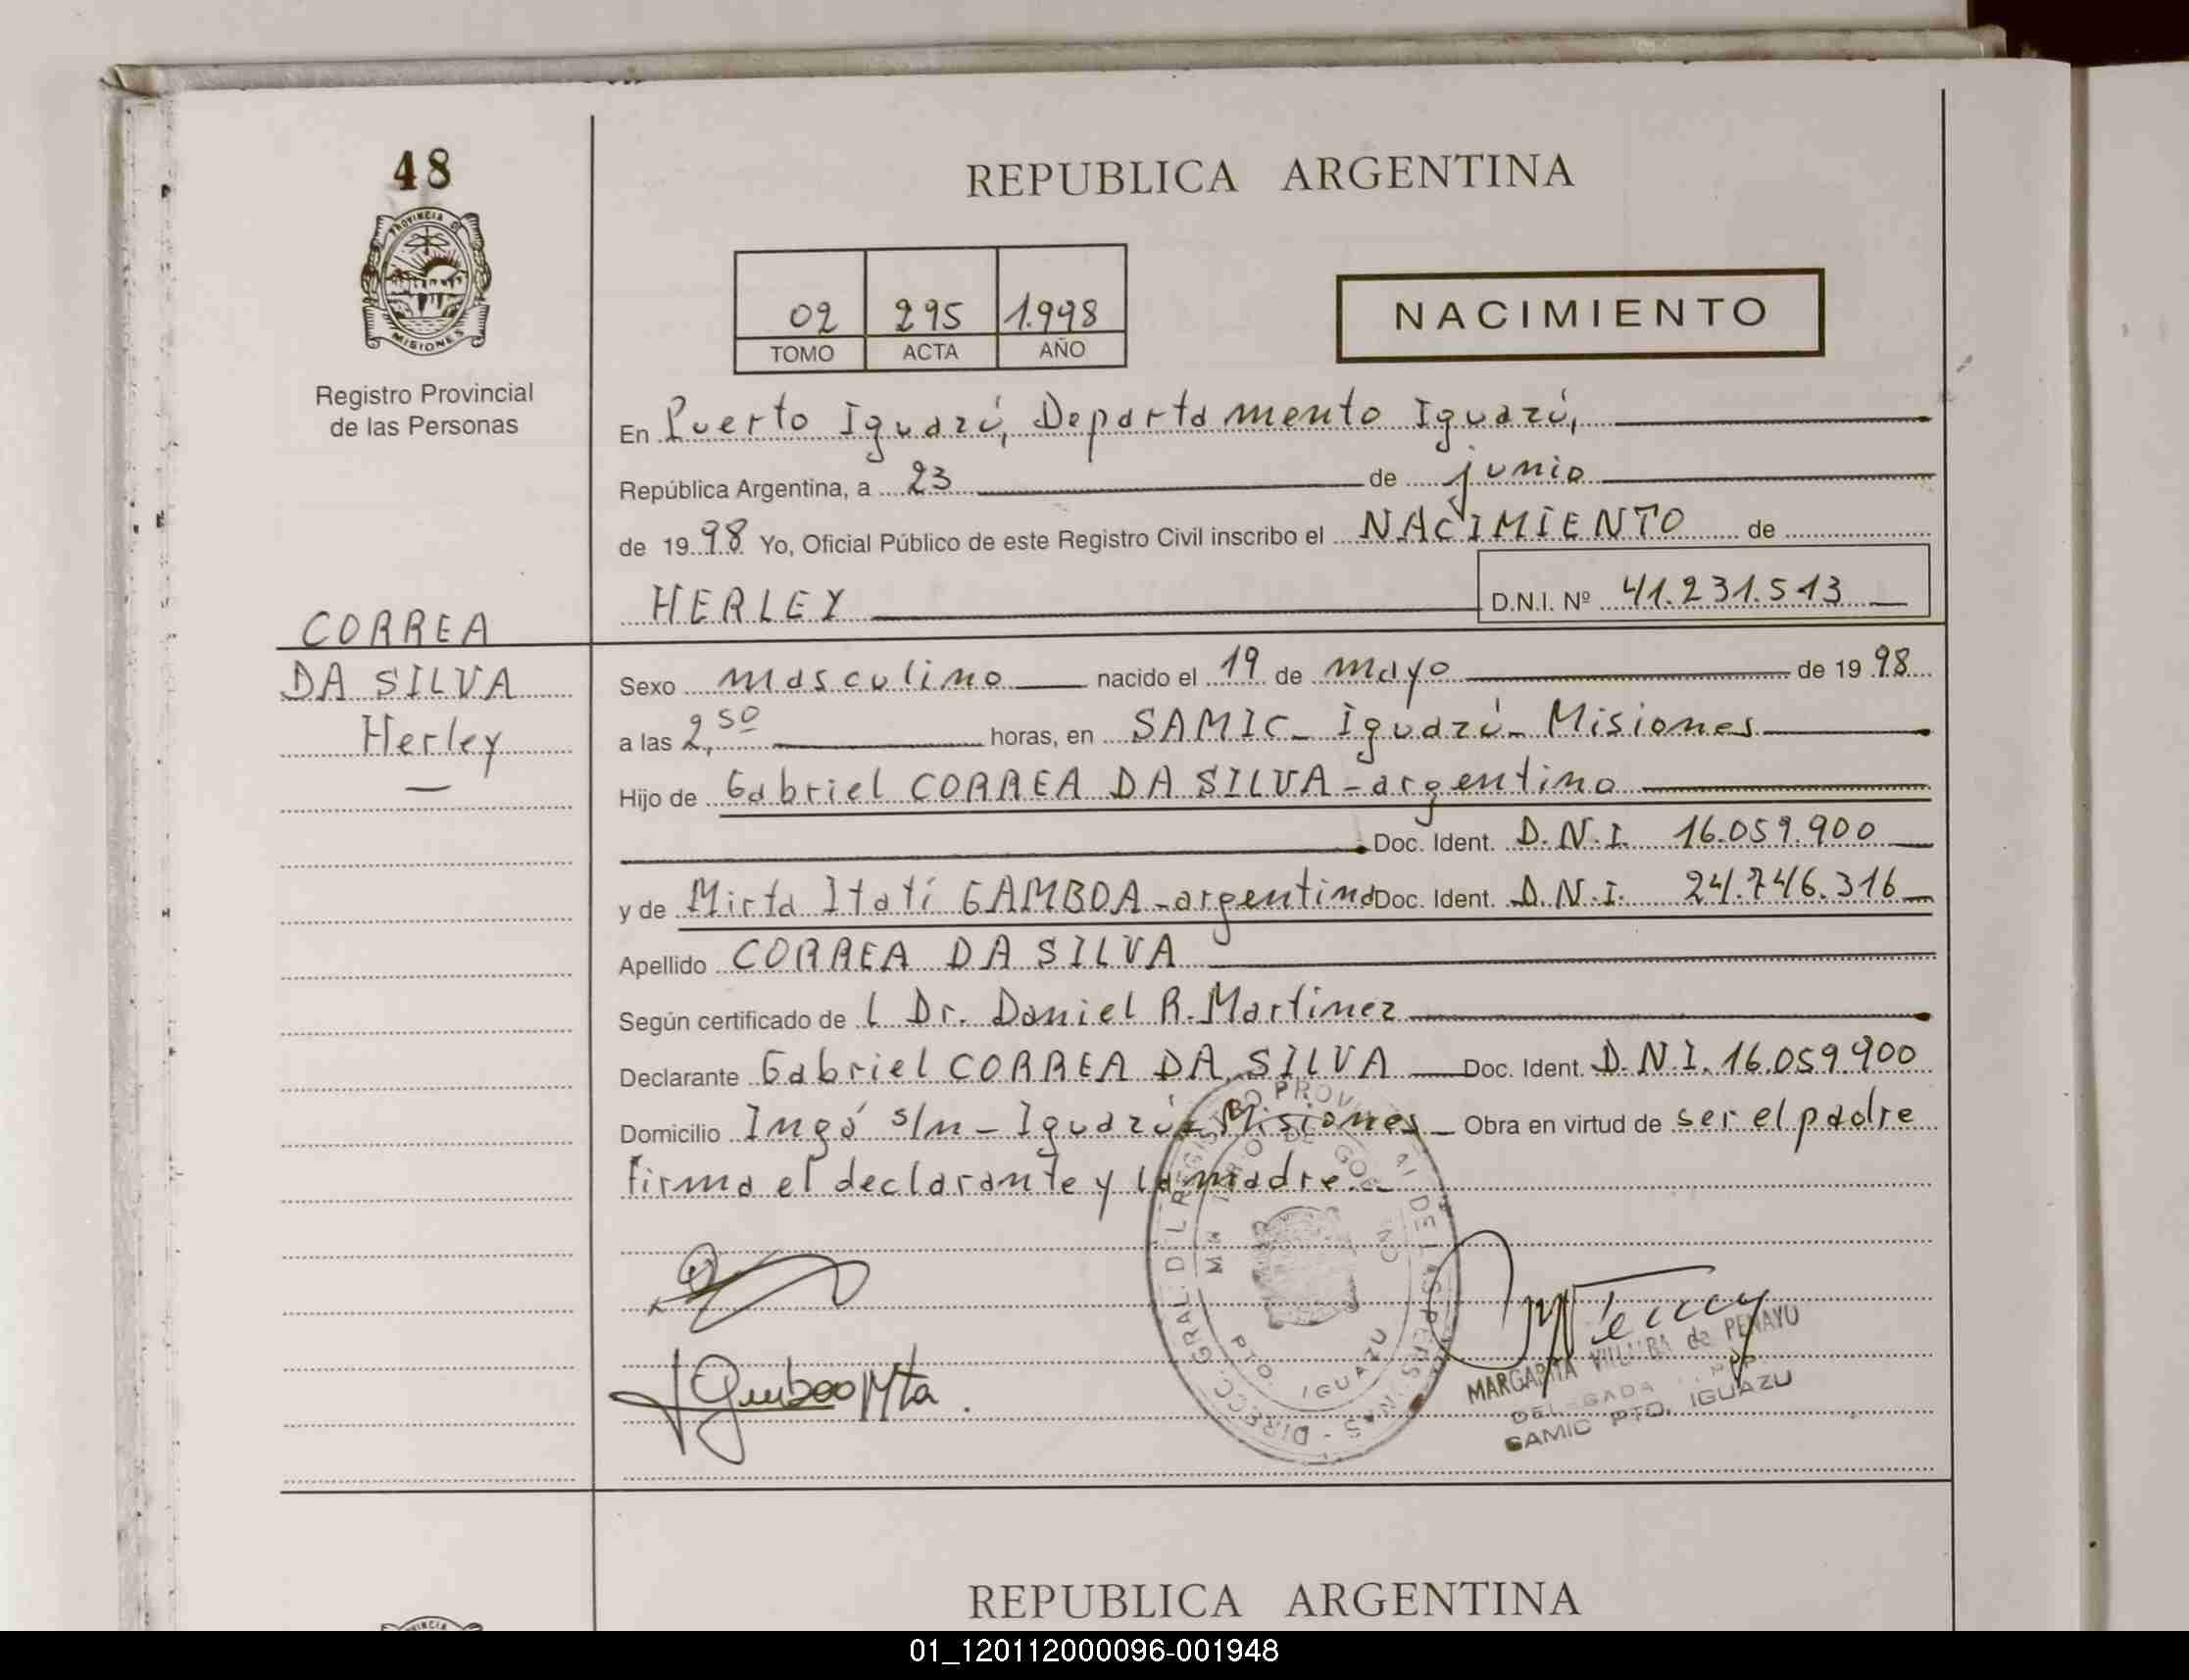 48
REPUBLICA ARGENTINA
PROVINCIA DE
MISIONES
02 295 1.998
TOMO ACTA AÑO
NACIMIENTO
Registro Provincial
de las Personas
En Puerto Iguazú, Departamento Iguazú,
República Argentina, a 23 de junio
de 19 98 Yo, Oficial Público de este Registro Civil inscribo el NACIMIENTO de
HERLEY D.N.I. Nº 41.231.513
CORREA
DA SILVA
Herley
Sexo masculino nacido el 19 de mayo de 19 98
a las 2,50 horas, en SAMIC - Iguazú - Misiones
Hijo de Gabriel CORREA DA SILVA - argentino
Doc. Ident. D.N.I. 16.059.900
y de Mirta Itatí GAMBOA - argentina Doc. Ident. D.N.I. 24.746.316
Apellido CORREA DA SILVA
Según certificado de l Dr. Daniel R. Martinez
Declarante Gabriel CORREA DA SILVA Doc. Ident. D.N.I. 16.059.900
Domicilio Ingó s/n - Iguazú - Misiones - Obra en virtud de ser el padre
Firma el declarante y la madre.-
PTO IGUAZU
Gamboa Mta.
MARGARITA VILLALBA de PENAYO
DELEGADA
SAMIC PTO. IGUAZU
REPUBLICA ARGENTINA
01_120112000096-001948